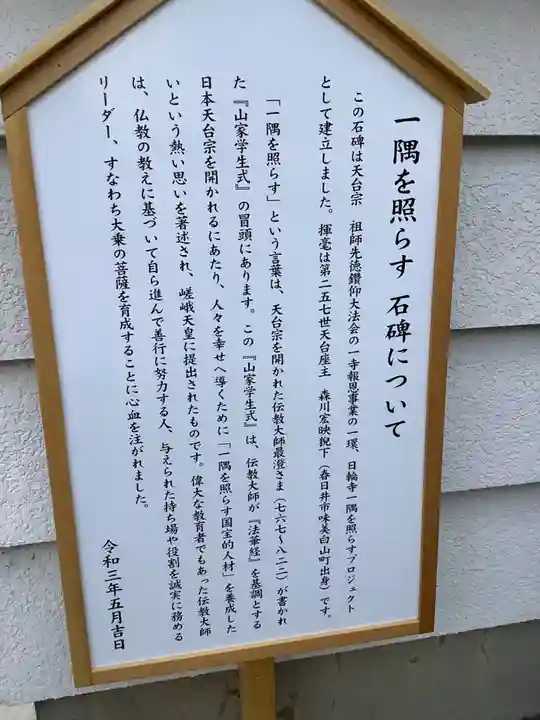 一隅を照らす 石碑について
この石碑は天台宗 祖師先徳鑽仰大法会の一寺報恩事業の一環、日輪寺一隅を照らすプロジェクト
として建立しました。揮毫は第二五七世天台座主 森川宏映猊下(春日井市味美白山町出身)です。
「一隅を照らす」という言葉は、天台宗を開かれた伝教大師最澄さま(七六七〜八二二)が書かれ
た『山家学生式』の冒頭にあります。この『山家学生式』は、伝教大師が『法華経』を基調とする
日本天台宗を開かれるにあたり、人々を幸せへ導くために「一隅を照らす国宝的人材」を養成した
いという熱い思いを著述され、嵯峨天皇に提出されたものです。偉大な教育者でもあった伝教大師
は、仏教の教えに基づいて自ら進んで善行に努力する人、与えられた持ち場や役割を誠実に務める
リーダー、すなわち大乗の菩薩を育成することに心血を注がれました。
令和三年五月吉日